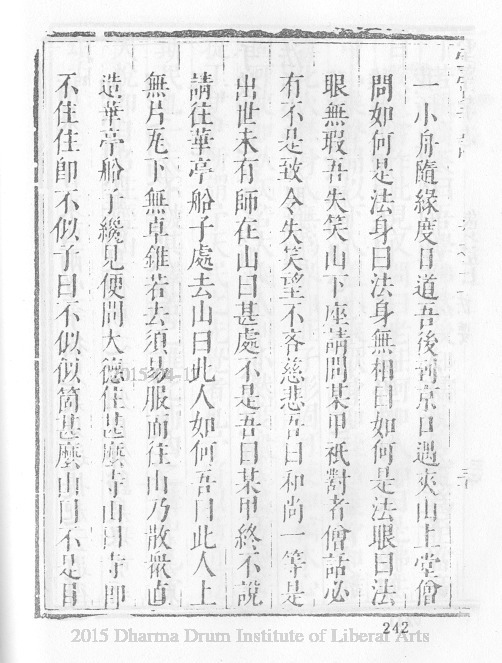 一小舟隨緣度日道吾後到京口遇夾山上堂僧
問如何是法身曰法身無相曰如何是法眼曰法
眼無瑕吾失笑山下座請問某甲祇對者僧話必
有不是致令失笑望不吝慈悲吾曰和尚一等是
出世未有師在山曰甚處不是吾曰某甲終不說
請往華亭船子處去山曰此人如何吾曰此人上
無片瓦下無卓錐若去須易服而往山乃散眾直
造華亭船子纔見便問大德住甚麼寺山曰寺即
不住住即不似子曰不似似箇甚麼山曰不是目
242
2015 Dharma Drum Institute of Liberal Arts